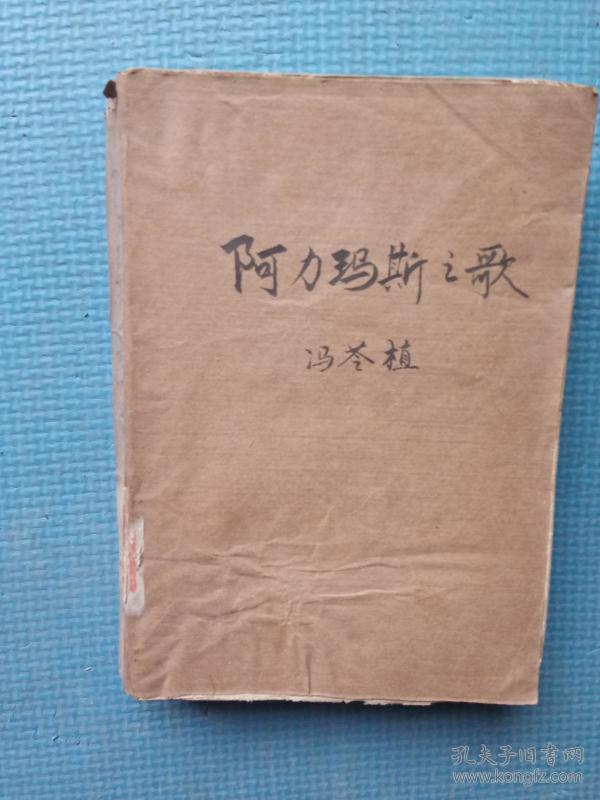 阿力玛斯之歌
冯苓植
孔夫子旧书网
www.kongfz.com